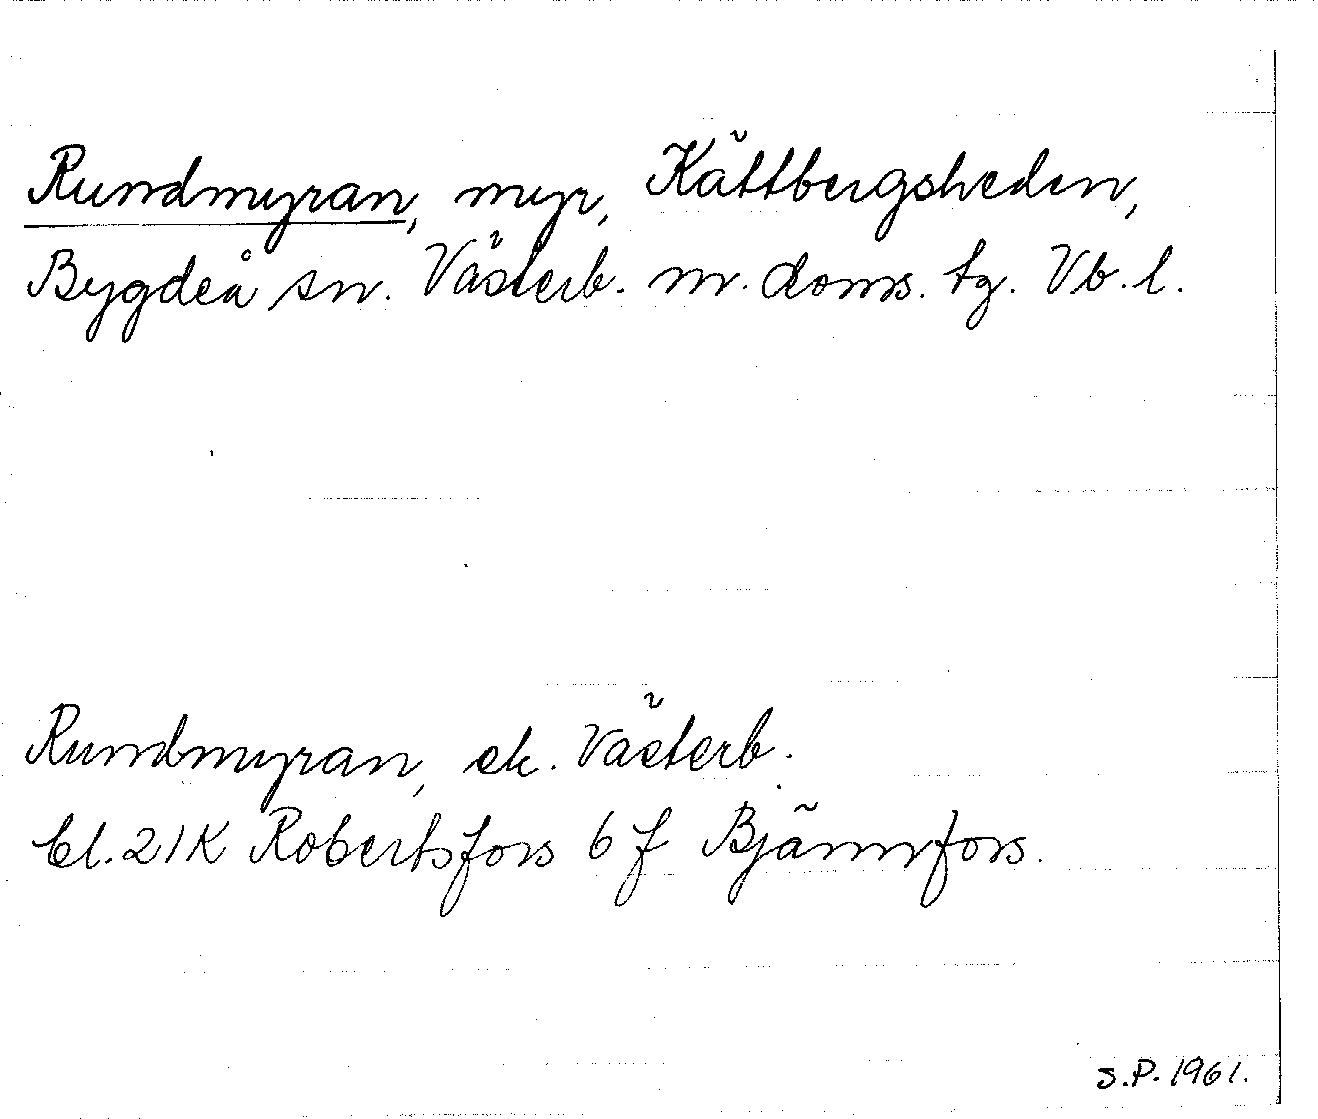 Rundmyran, myr, Kättbergsheden,
Bygdeå sn. Västerb. m. doms. tg. Vb. l.
Rundmyran, ek. Västerb.
bl. 21K Robertsfors 6 f Bjännfors.
S.P. 1961.